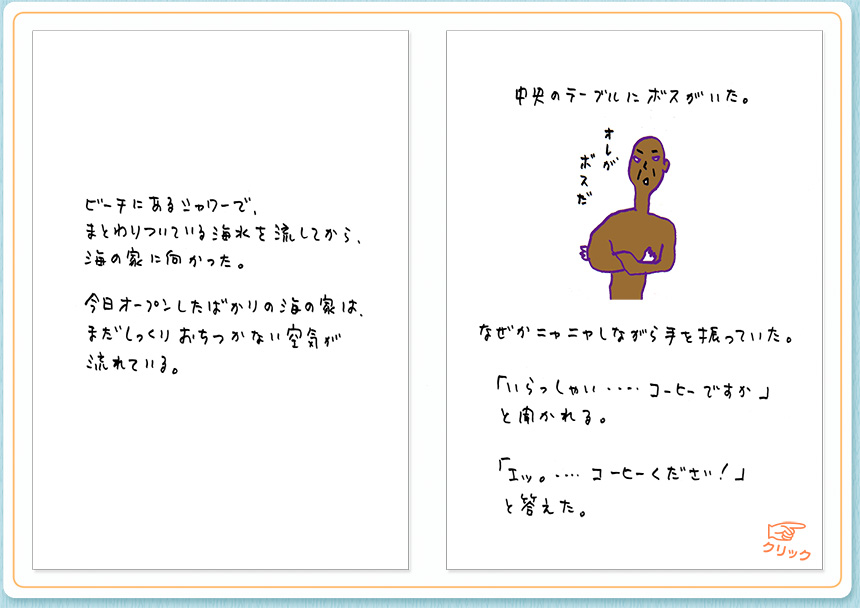 ビーチにあるシャワーで、
まとわりついている海水を流してから、
海の家に向かった。
今日オープンしたばかりの海の家は、
まだしっくりおちつかない空気が
流れている。
中央のテーブルにボスがいた。
オレが
ボスだ
なぜかニヤニヤしながら手を振っていた。
「いらっしゃい‥‥コーヒーですか」
と聞かれる。
「エッ。‥‥コーヒーください！」
と答えた。
クリック